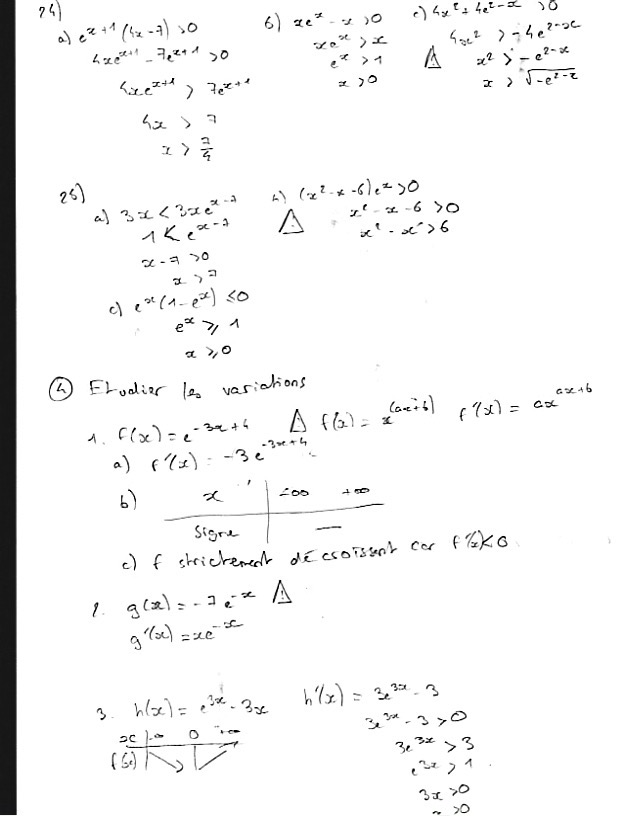 24)
a) e^{x+1} (4x-7) > 0
4xe^{x+1} - 7e^{x+1} > 0
4xe^{x+1} > 7e^{x+1}
4x > 7
x > 7/4
b) xe^x - x > 0
xe^x > x
e^x > 1
x > 0
c) 4x² + 4e^{2-x} > 0
4x² > -4e^{2-x}
⚠ x² > -e^{2-x}
x > √(-e^{2-x})
25)
a) 3x < 3xe^{x-7}
1 < e^{x-7}
x-7 > 0
x > 7
b) (x²-x-6)e^x > 0
⚠ x²-x-6 > 0
x²-x > 6
c) e^x (1-e^x) ≤ 0
e^x ≥ 1
x ≥ 0
④ Etudier les variations
1. f(x) = e^{-3x+4} ⚠ f(x) = x^{(ax+b)} f'(x) = ax^{ax+b}
a) f'(x) = -3e^{-3x+4}
b) x -∞ +∞
Signe —
c) f strictement décroissant car f'(x) < 0
2. g(x) = -7e^{-x} ⚠
g'(x) = xe^{-x}
3. h(x) = e^{3x} - 3x h'(x) = 3e^{3x} - 3
x -∞ 0 +∞
f(x)
3e^{3x} - 3 > 0
3e^{3x} > 3
e^{3x} > 1
3x > 0
x > 0